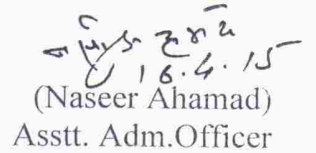 16.4.15
(Naseer Ahamad)
Asstt. Adm.Officer